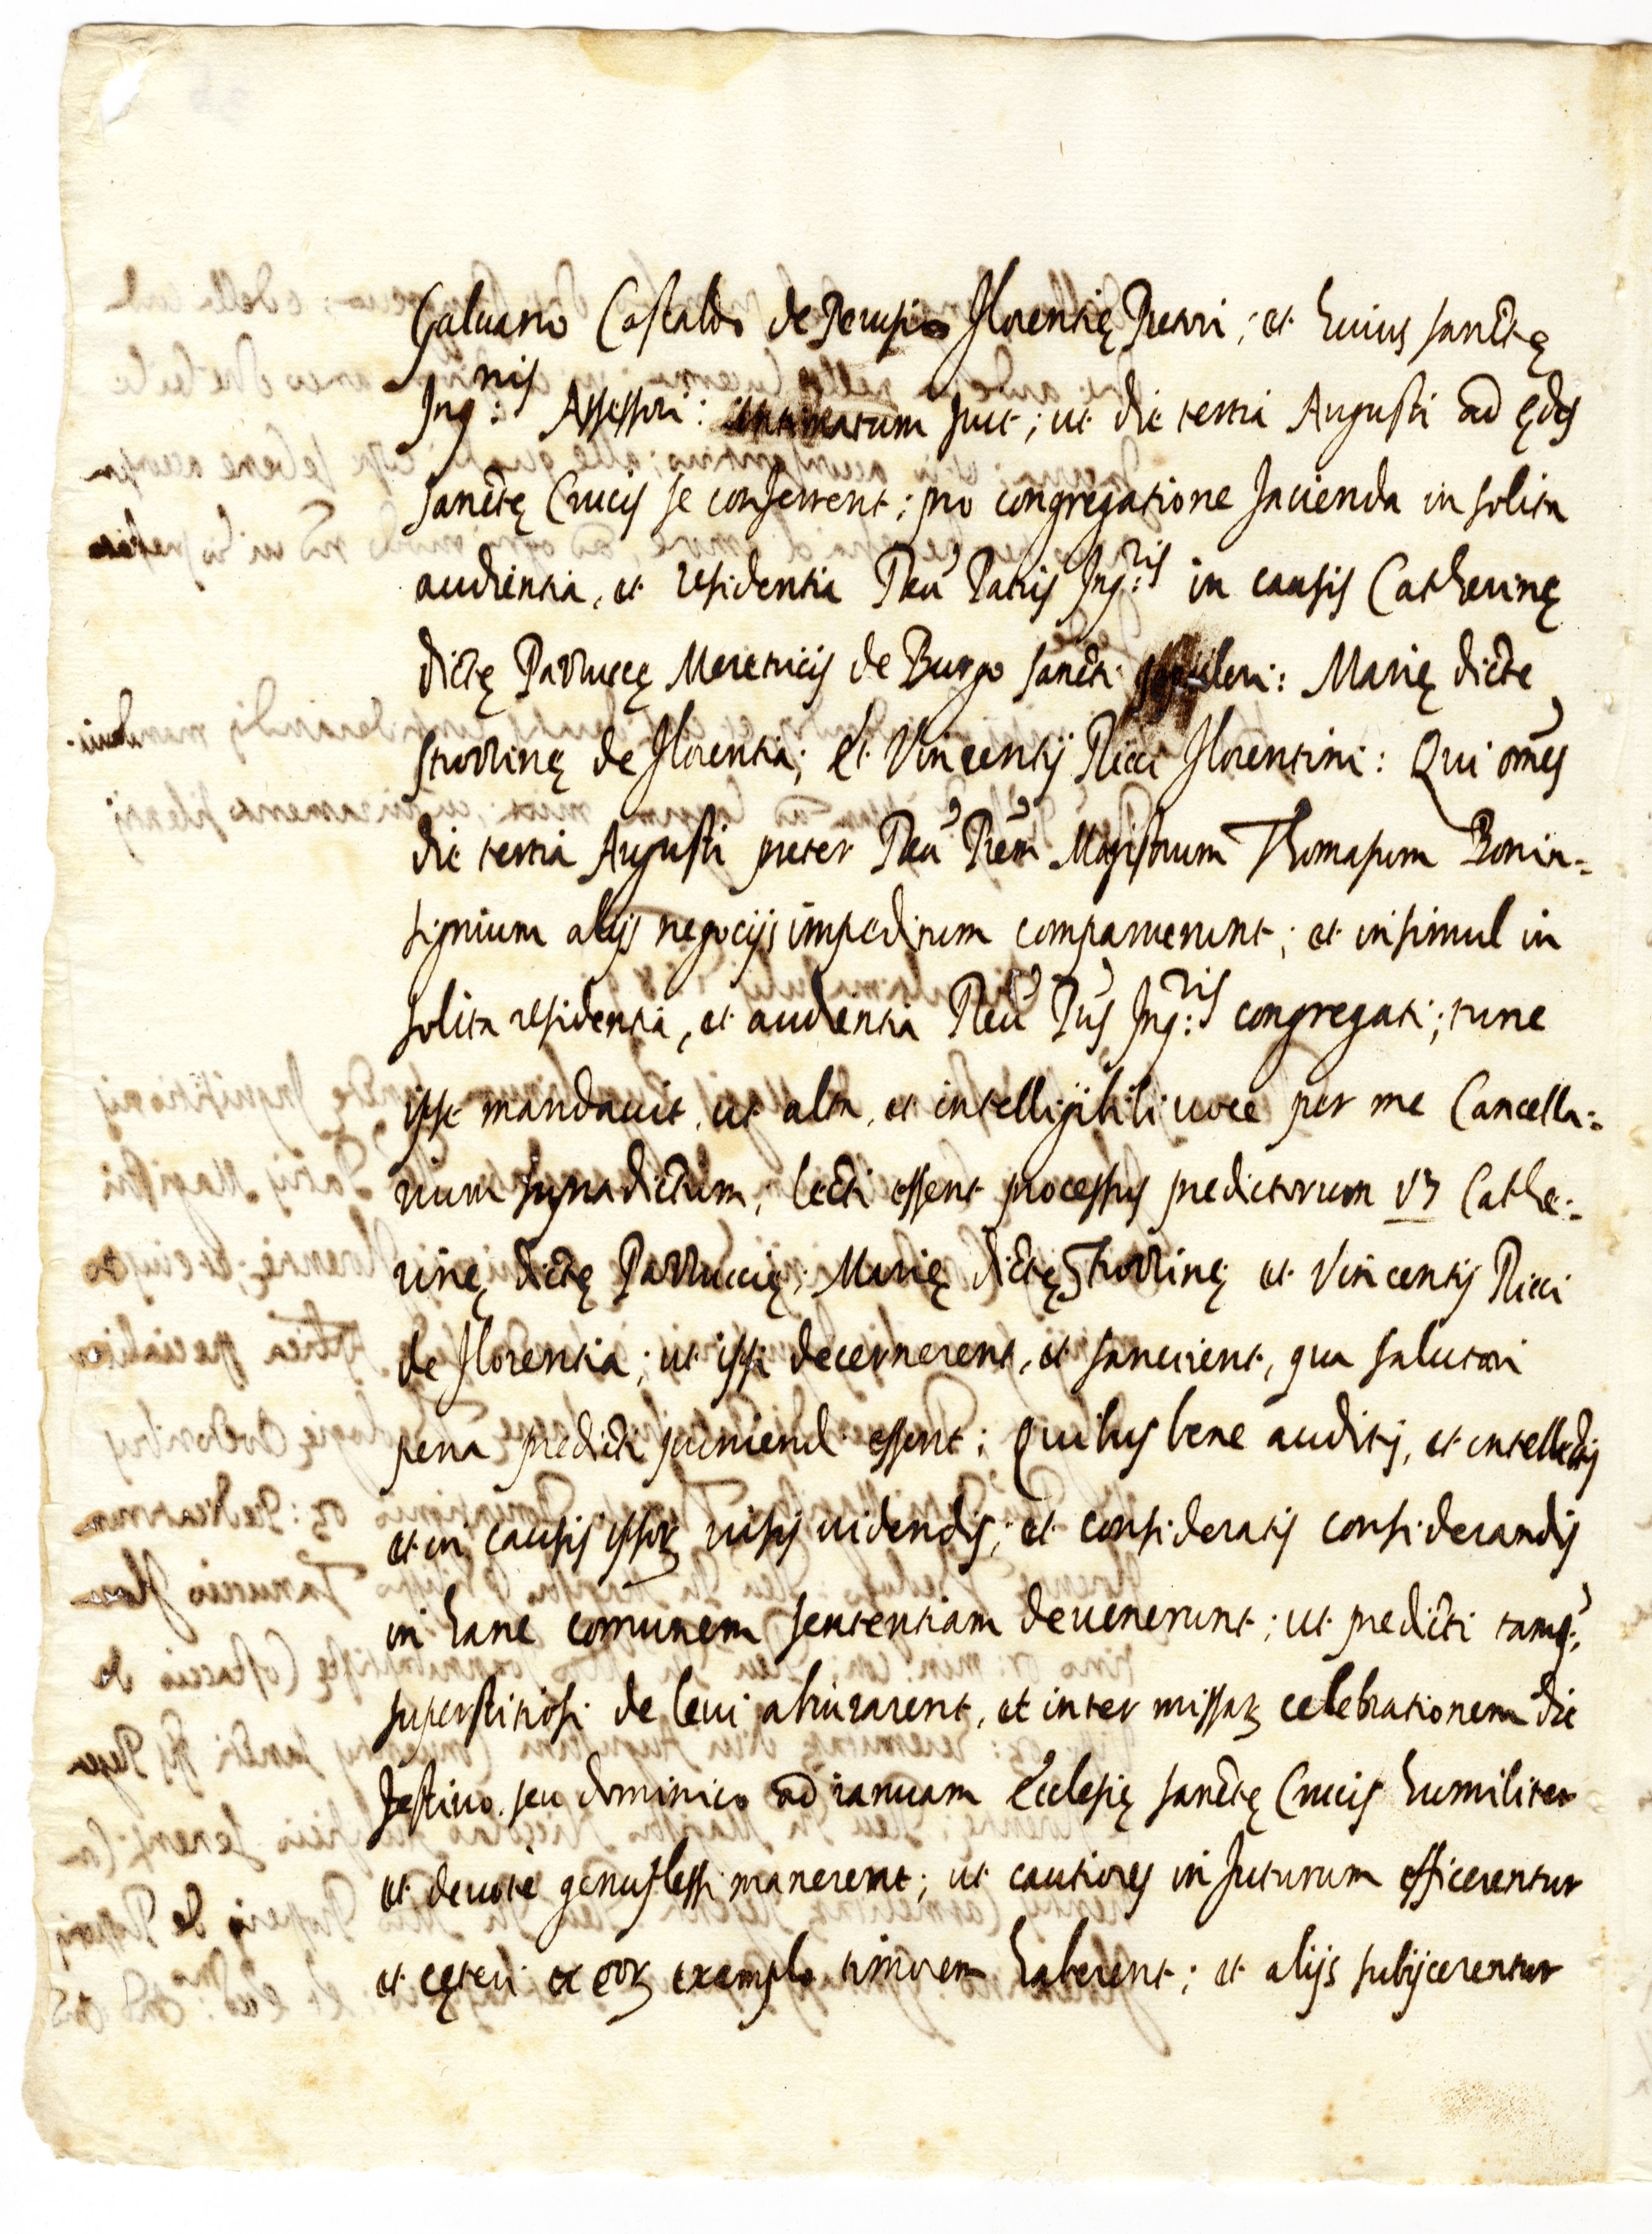 Galuano Castaldo de Perusio Florentię Pretori; et huius sanctę
Inq:nis Assessori: intimatum fuit; ut die tertia Augusti ad ędes
sanctę Crucis se conferrent; pro congregatione facienda in solita
audientia, et residentia Reu' Patris Inq:ris in causis Catherinę
dictę Parruccę Meretricis de Burgo sancti sepulcri: Marię dicte
storrinę de Florentia; et Vincentij Ricci Florentini: Qui omēs
die tertia Augusti preter Reu' Prem Magistrum Thomasum Bonin-
signium alijs negocijs impeditum comparuerunt; et insimul in
solita residentia, et audientia Reu' Pris Inq:ris congregati; tunc
ipse mandauit, ut alta, et intelligibili uoce per me Cancella-
rium supradictum; lecti essent processus predictorum vz Cathe-
rinę dictę Parruccię; Marię dictę storrinę et Vincentij Ricci
de Florentia; ut ipsi decernerent, et sancirent, qua salutari
pena predicti puniendi essent: Quibus bene auditis, et intellectis
et in causis ipsoꝝ uisis uidendis; et consideratis considerandis
in hanc comunem sententiam deuenerunt; ut predicti tamq:'
superstitiosi de leui abiurarent, et inter missaꝝ celebrationem die
festiuo seu dominico ad ianuam Ecclesię sanctę Crucis humiliter
et deuotè genuflessi manerent; ut cautiores in futurum efficerentur
et cęteri ex eoꝝ exemplo timorem haberent; et alijs subijcerentur